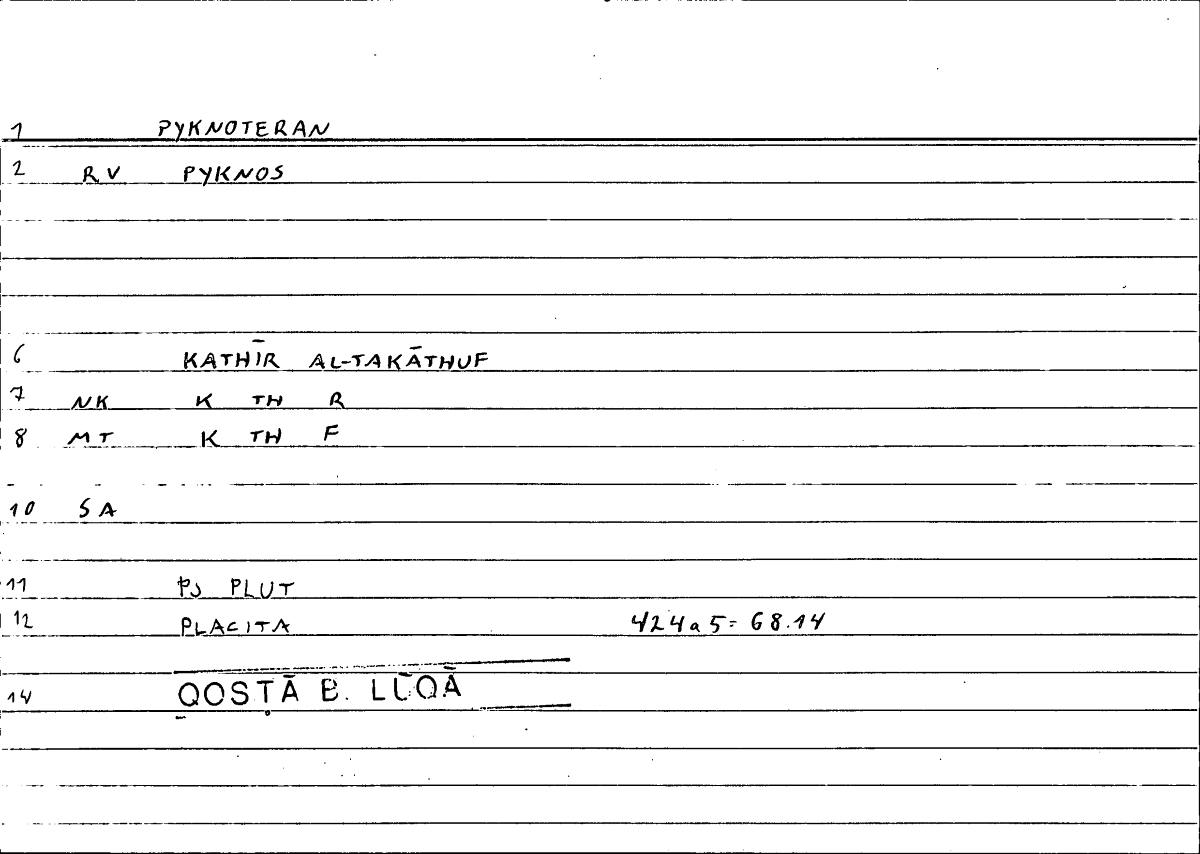 1 PYKNOTERAN
2 RV PYKNOS
6 KATHĪR AL-TAKĀTHUF
7 NK K TH R
8 MT K TH F
10 SA
11 PS PLUT
12 PLACITA 424a5= 68.14
14 QOSṬĀ B. LŪQĀ